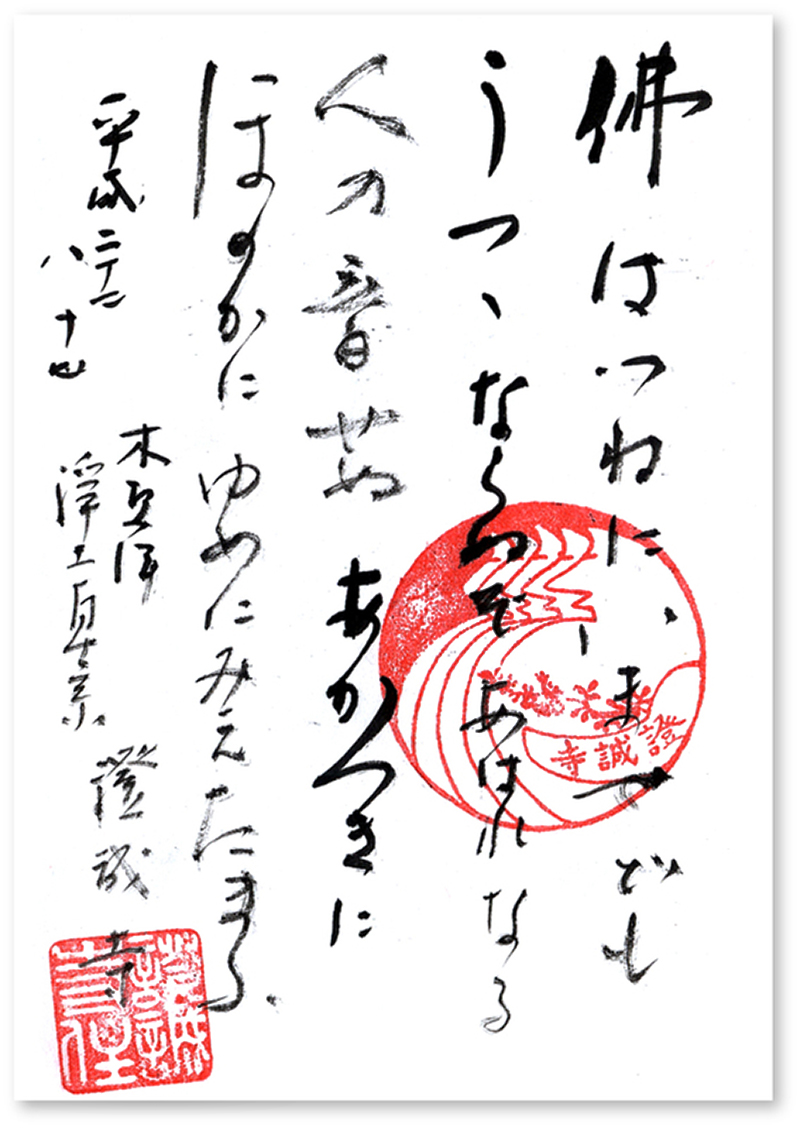 佛はつねに、ませども
うつゝならぬぞあはれなる
人の音せぬあかつきに
ほのかにゆめにみえたまふ
平成二十二
八十四
浄土真宗
證誠寺
證誠寺